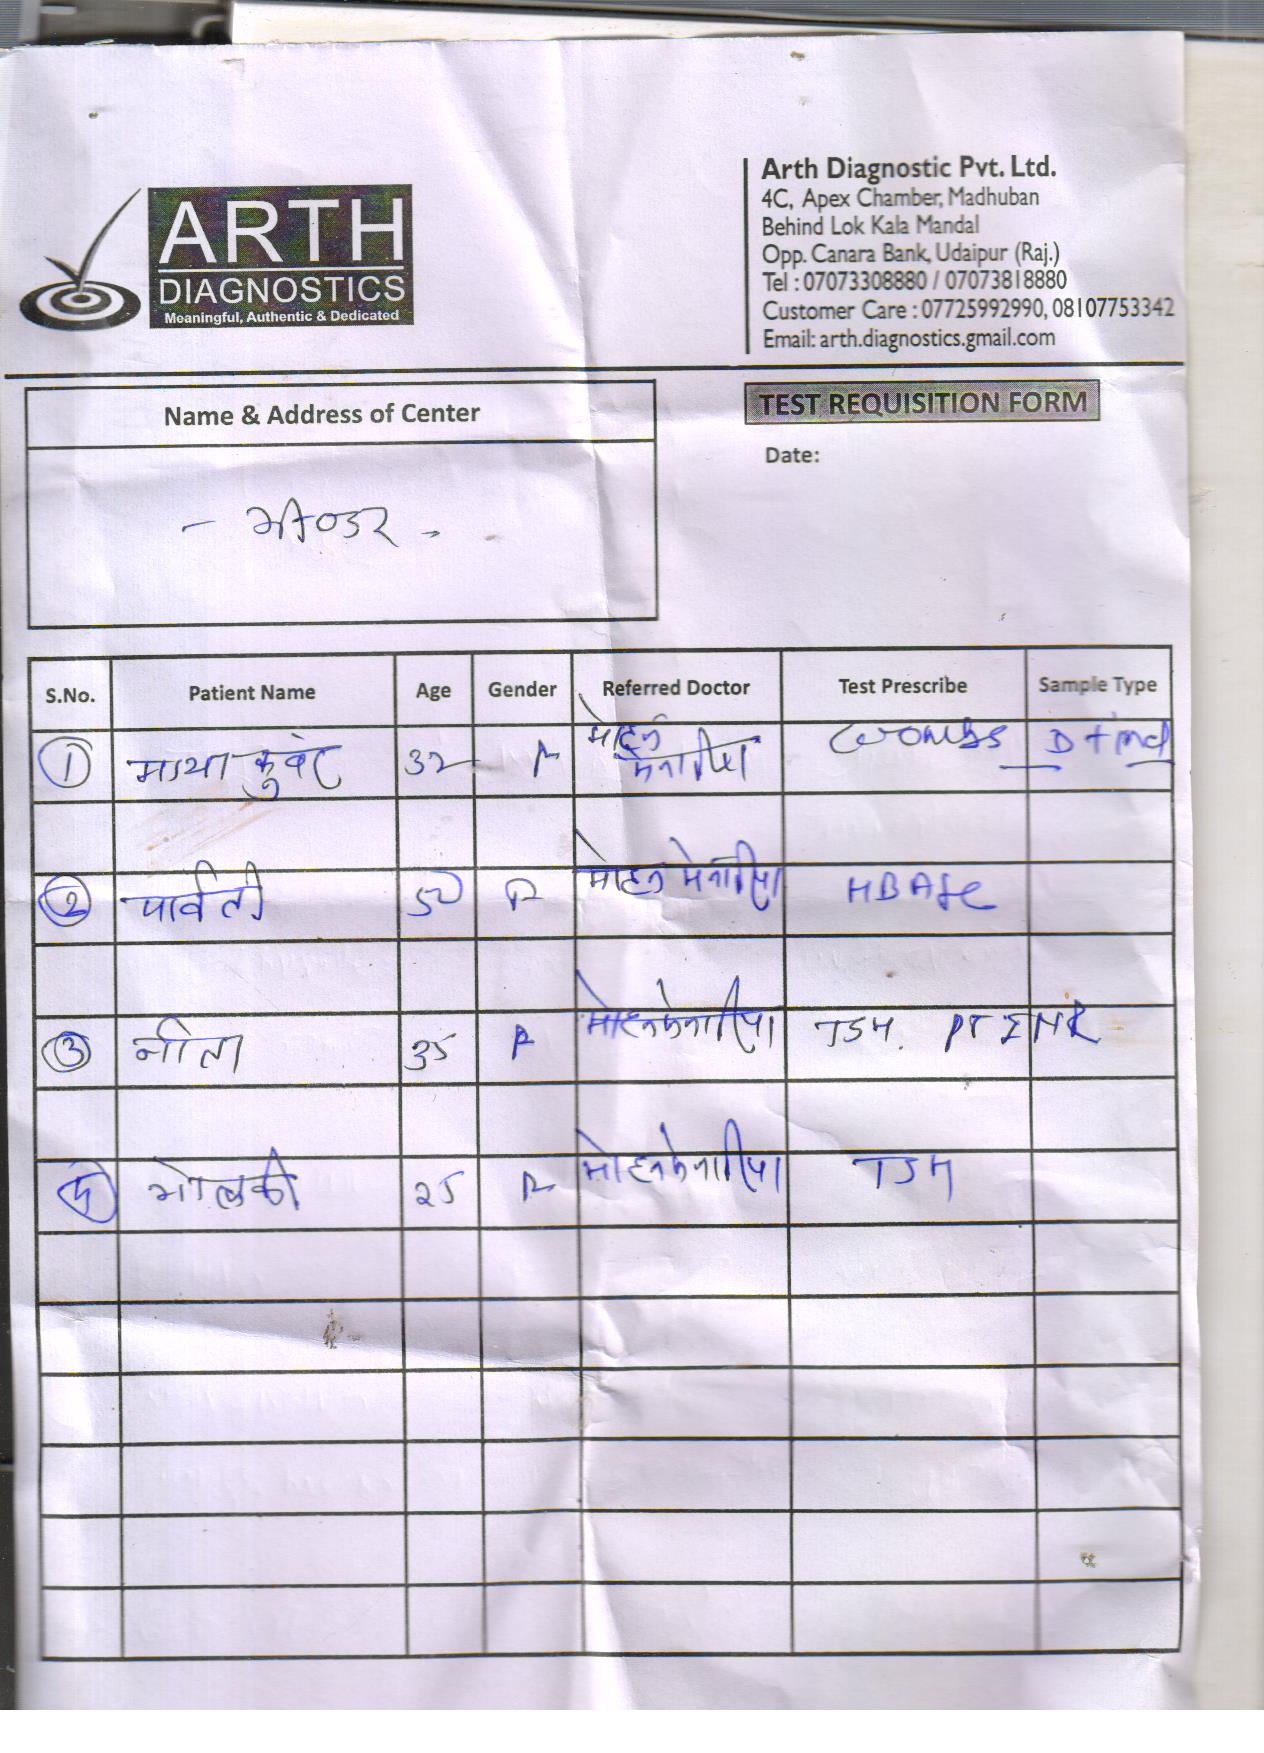 ARTH
DIAGNOSTICS
Meaningful, Authentic & Dedicated
Arth Diagnostic Pvt. Ltd.
4C, Apex Chamber, Madhuban
Behind Lok Kala Mandal
Opp. Canara Bank, Udaipur (Raj.)
Tel : 07073308880 / 07073818880
Customer Care : 07725992990, 08107753342
Email: arth.diagnostics.gmail.com
Name & Address of Center
TEST REQUISITION FORM
Date:
- भीण्डर -
S.No. Patient Name Age Gender Referred Doctor Test Prescribe Sample Type
1 माया कुवंर 32 F मोहन मेनारिया Coombs D + Ind
2 पार्वती 50 F मोहन मेनारिया HBA1c
3 नीता 35 F मोहन मेनारिया TSH. PT INR
4 25 F मोहन मेनारिया TSH